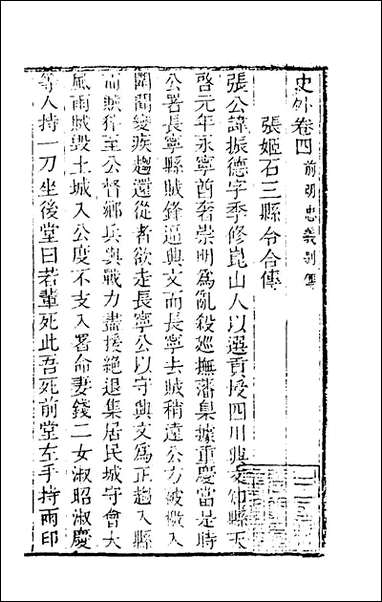 史外卷四 前明忠義別傳
張姬石三縣令合傳
張公諱振德字季修崑山人以選貢授四川興文知縣天
啓元年永寧酋奢崇明為亂殺巡撫藩臬據重慶當是時
公署長寧縣賊鋒逼興文而長寧去賊稍遠公方被檄入
闈聞變疾趨還從者欲走長寧公以守興文為正趨入縣
而賊猝至公督鄉兵與戰力盡援絕退集居民城守會大
風雨賊毀土城入公度不支入署命妻錢二女淑昭淑慶
等人持一刀坐後堂曰若輩死此吾死前堂左手持兩印